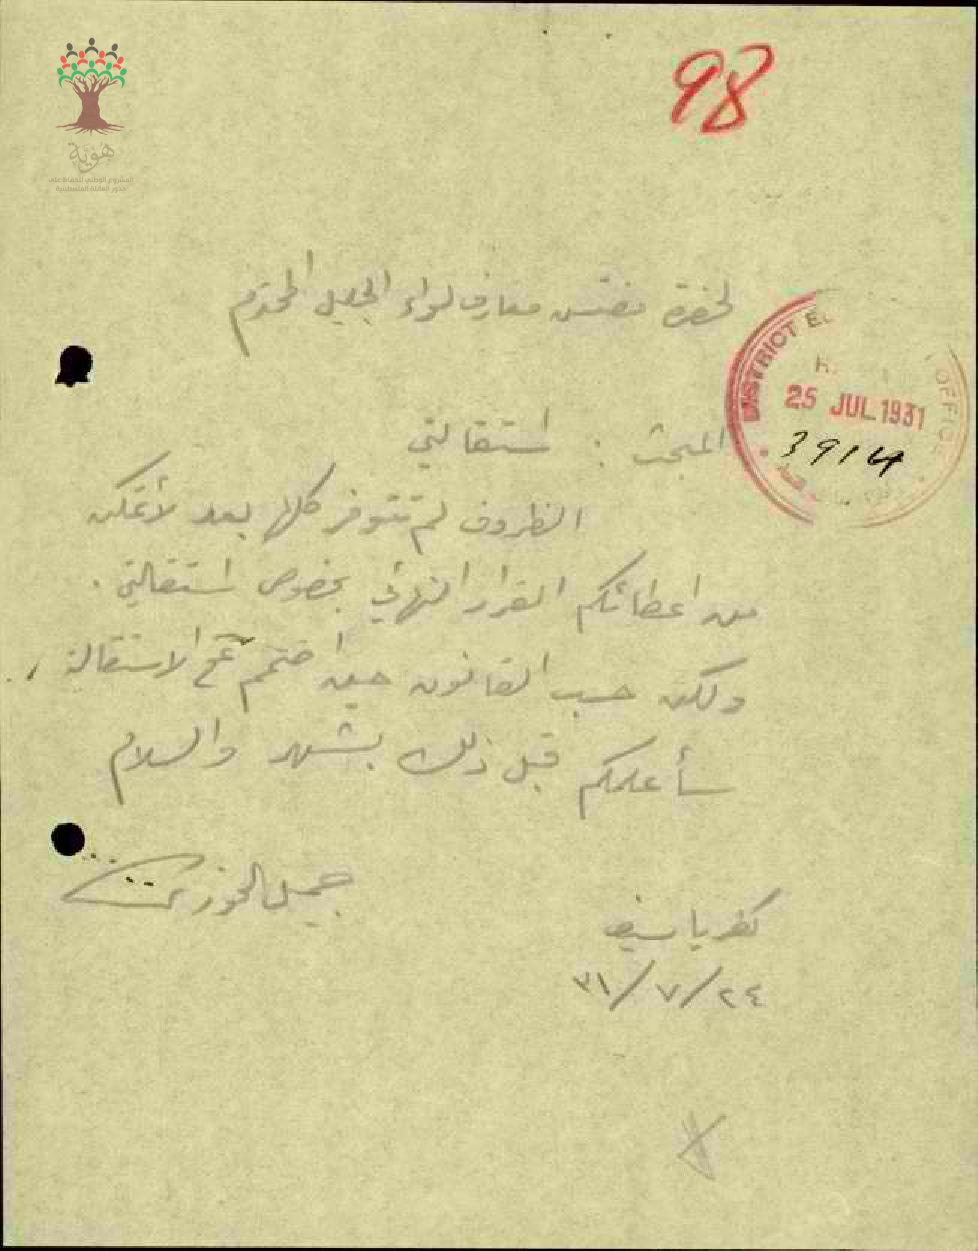 98
هوية
المشروع الوطني للحفاظ على
جذور العائلة الفلسطينية
لحضرة مفتش معارف لواء الجليل المحترم
DISTRICT E
OFFICE
H
25 JUL 1931
3914
المبحث : استقالتي
الظروف لم تتوفر كلها بعد لأتمكن
من اعطائكم القرار النهائي بخصوص استقالتي .
ولكن حسب القانون حين اصمم على الاستقالة ،
سأعلمكم قبل ذلك بشهر والسلام
جميل الخوري
كفر ياسيف
٢٤/٧/٣١